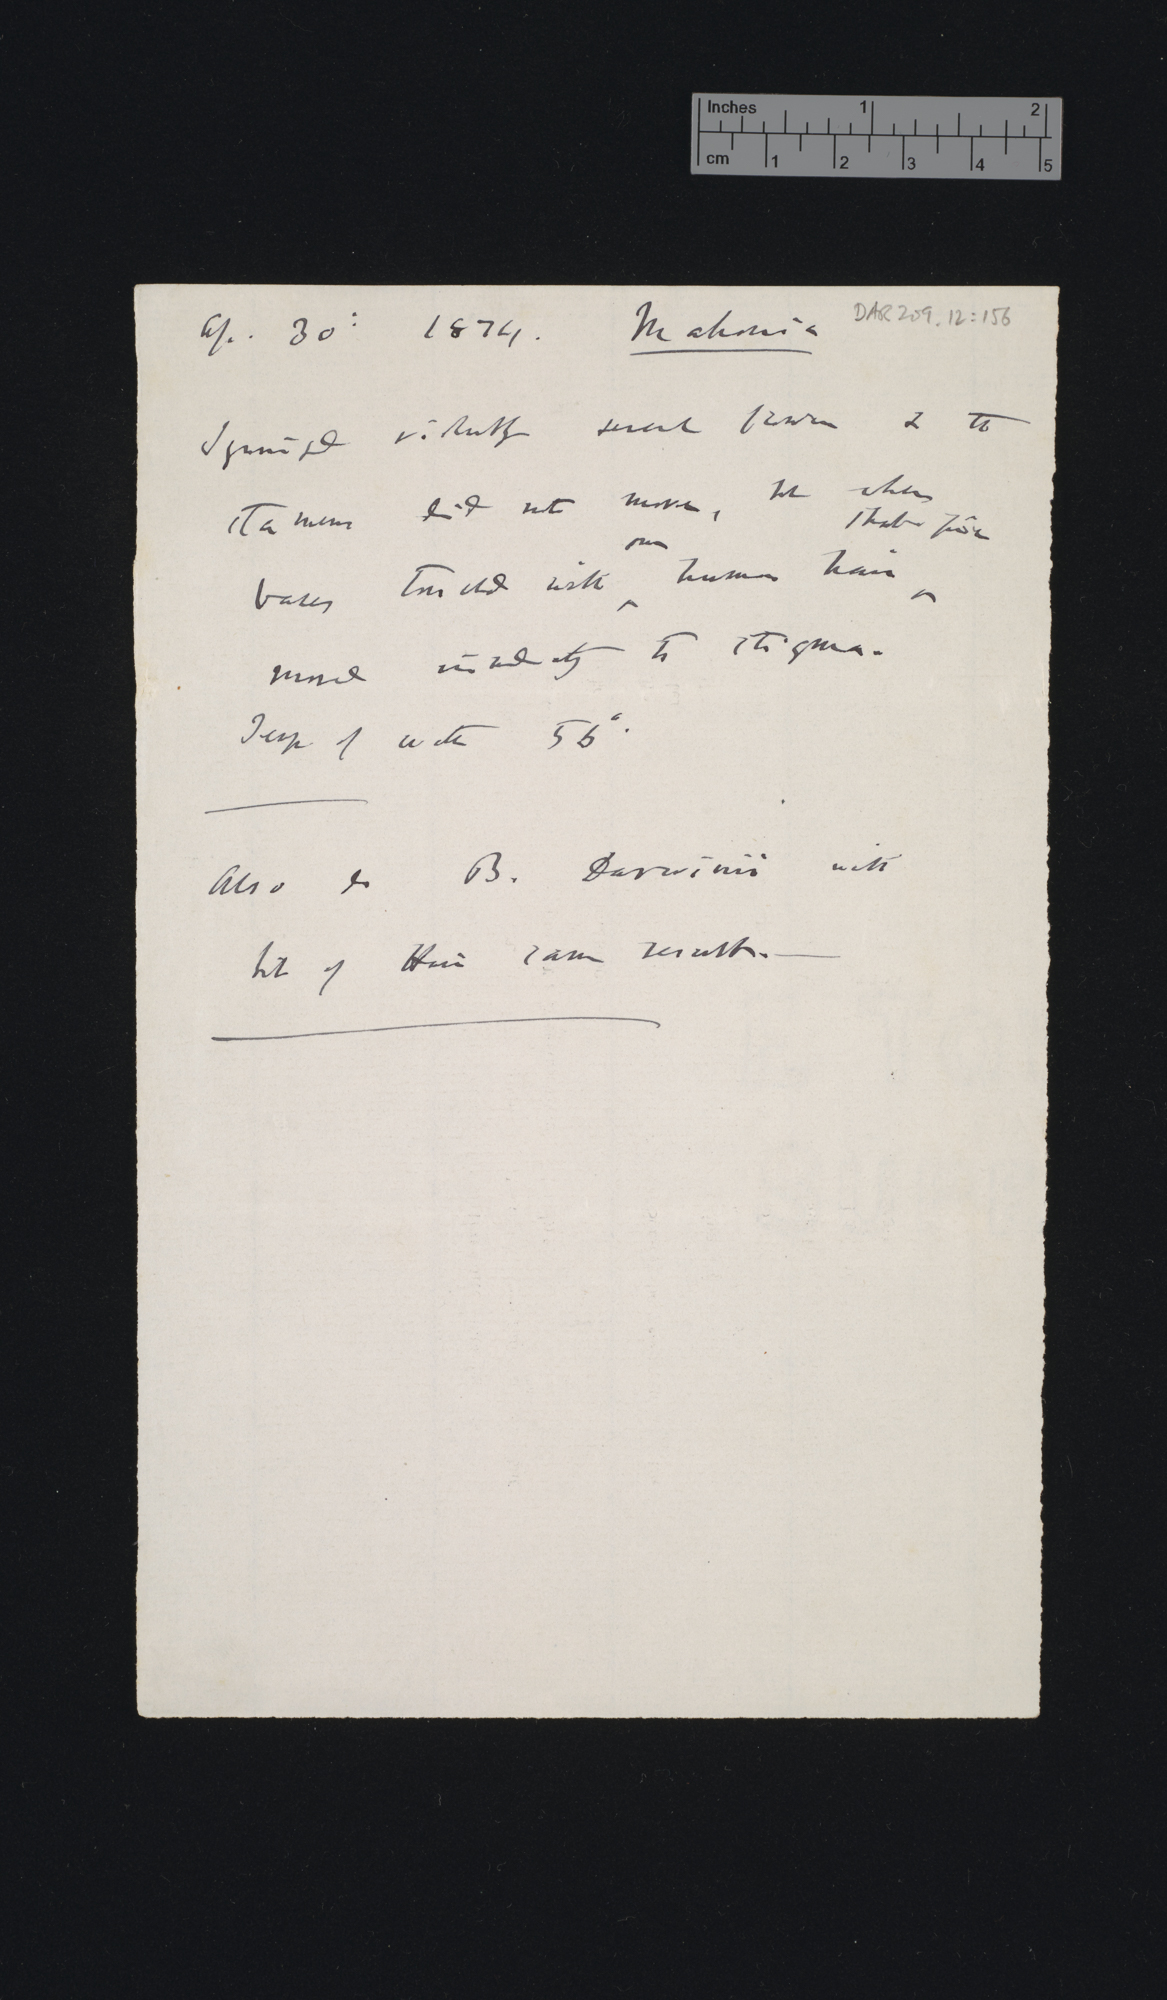 Inches 1 2
cm 1 2 3 4 5
DAR 209.12:156
Ap. 30: 1874. Mahonia
Syringed violently several flowers & the
stamens did not move, but when
bases touched with human hair
moved immediately to stigma.
Temp of water 56°.
Also do B. Darwinii with
bit of Hair same result.—